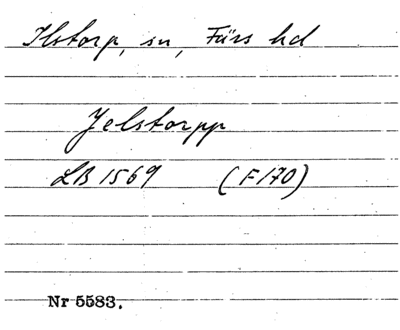 Ilstorp, sn, Färs hd
Jelstorpp
LB 1569 (F170)
Nr 5583.